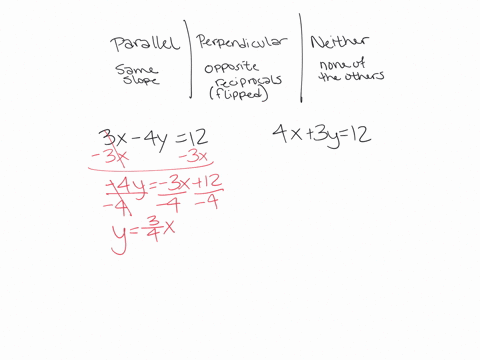 Parallel
Same
slope
Perpendicular
opposite
reciprocals
(flipped)
Neither
none of
the others
3x - 4y = 12
-3x -3x
-4y = -3x + 12
-4 -4 -4
y = 3/4 x
4x + 3y = 12